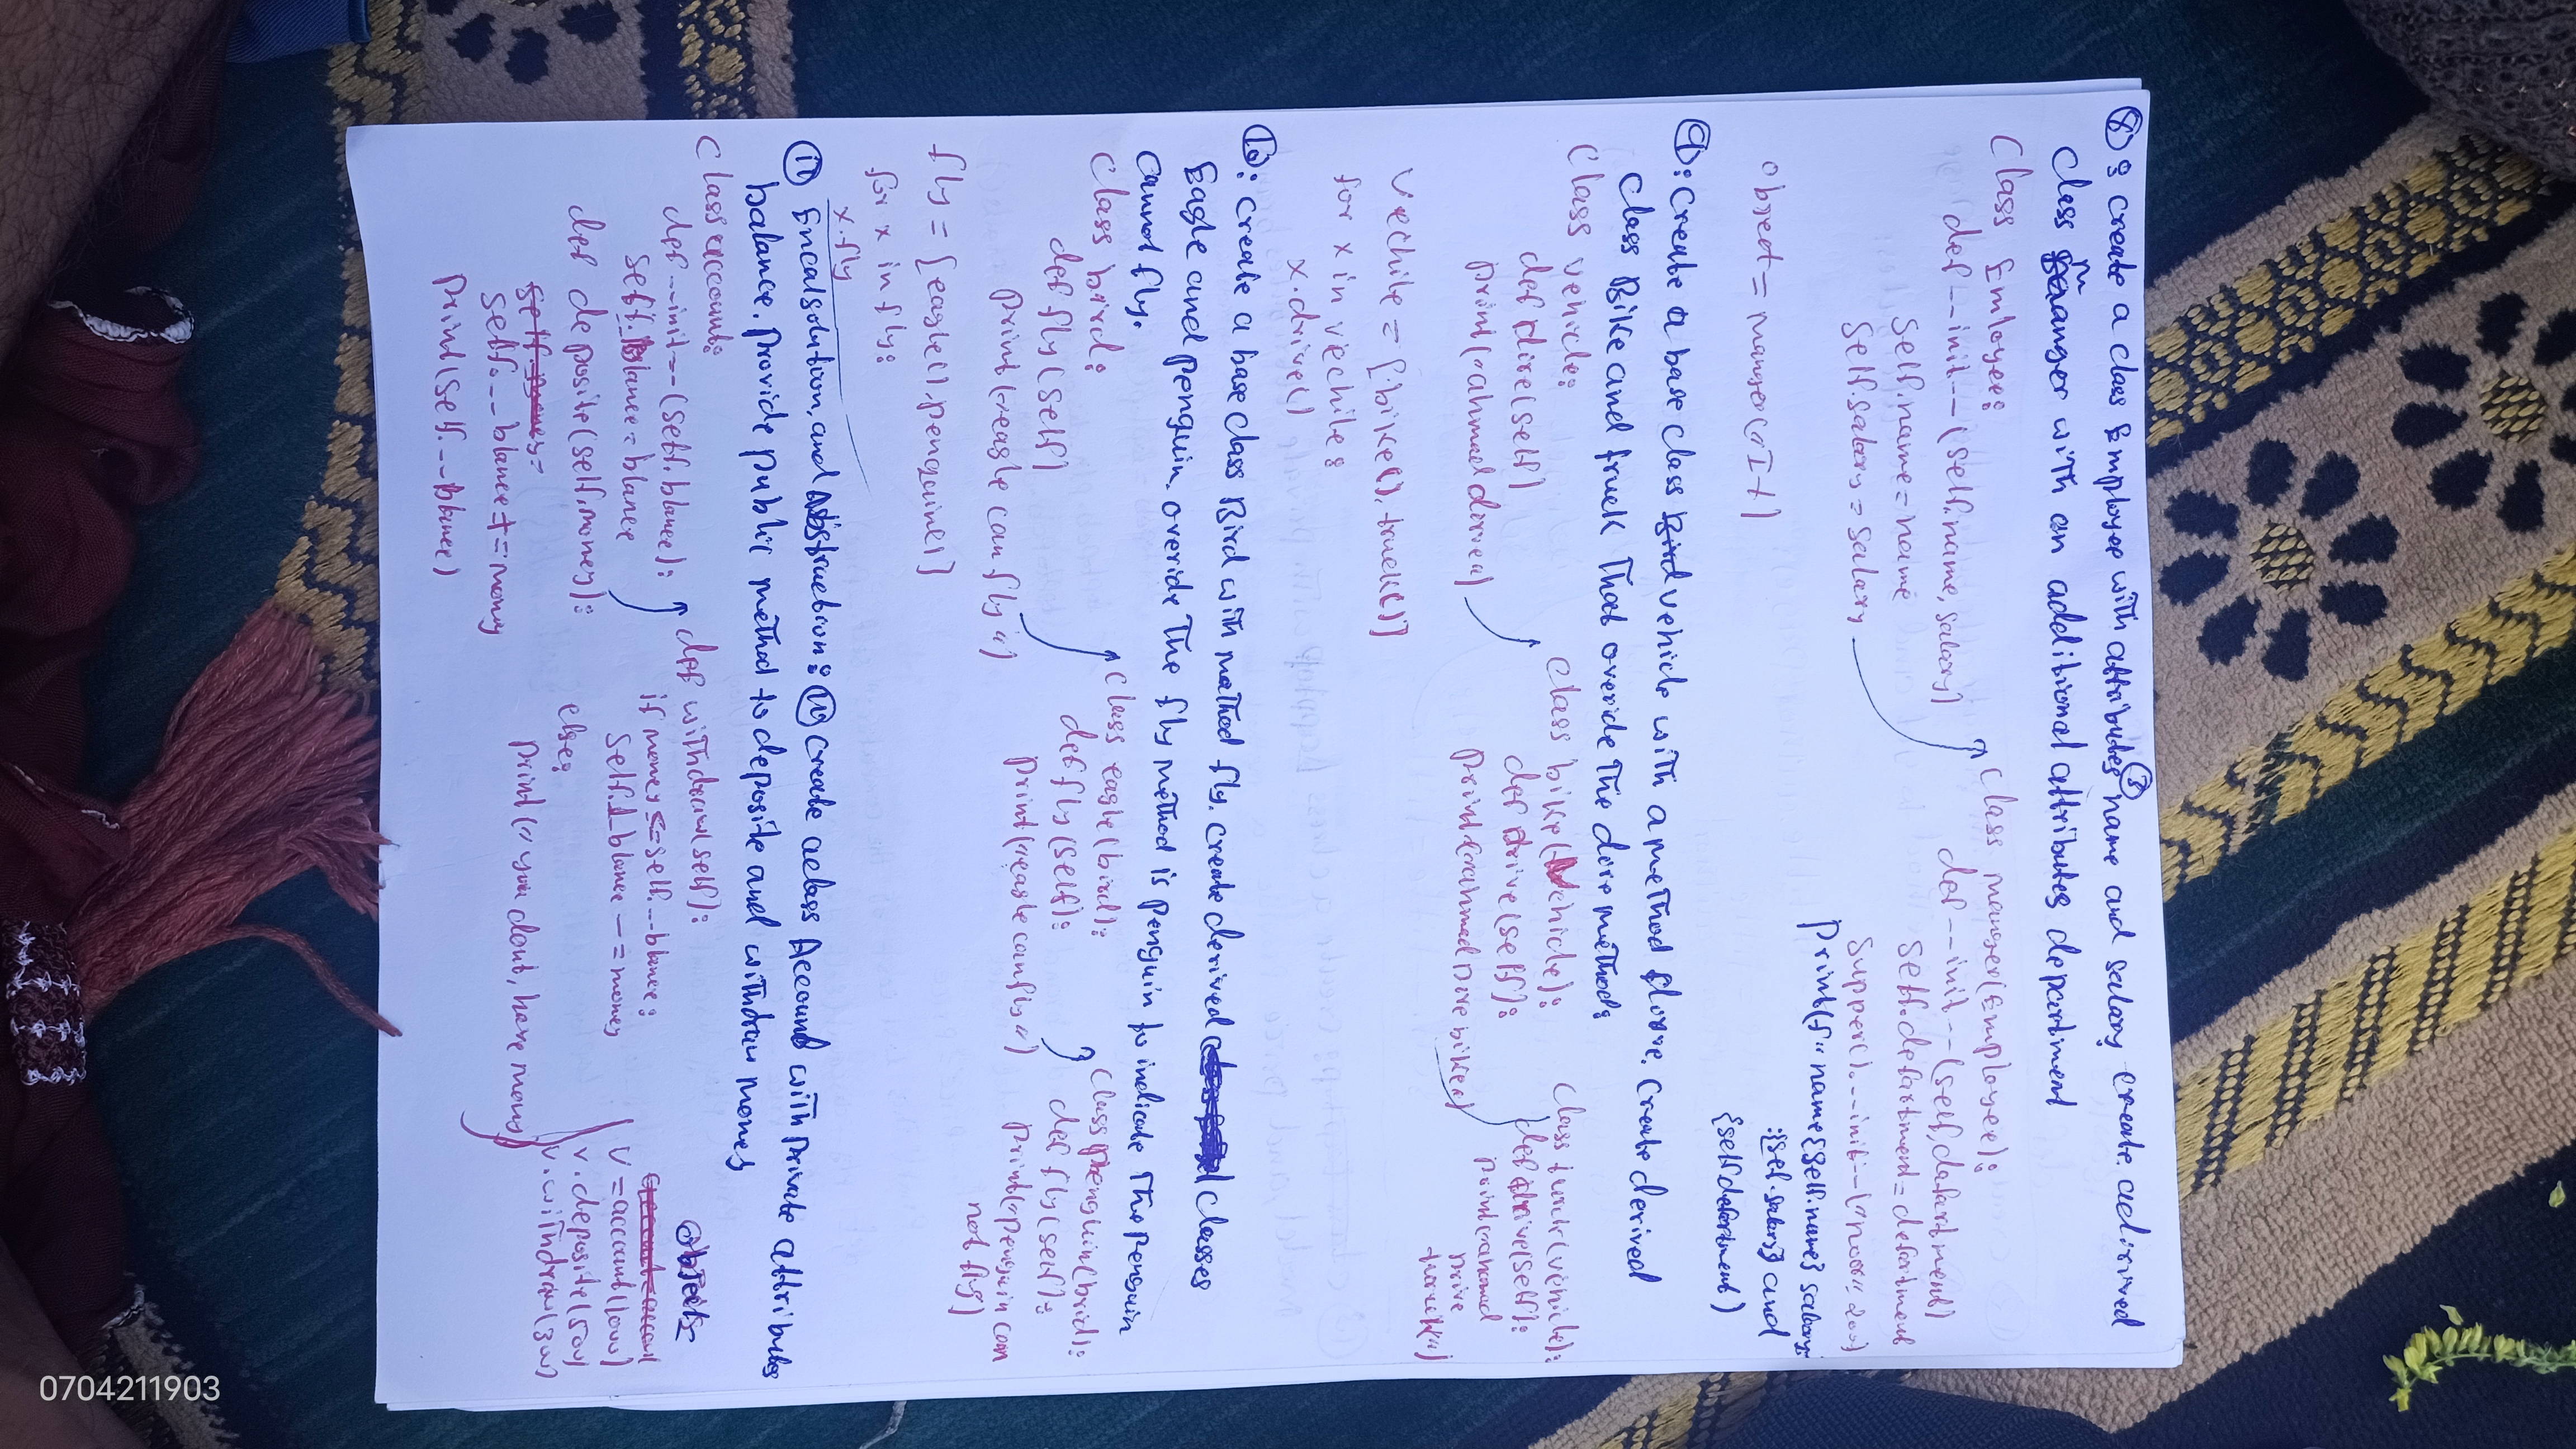 ⑧: create a class Employee with attributes ③ name and salary create a dirived
class manger with an additional attributes department
Class Emloyee:
def --init--(self.name, salary)
self.name = name
self.salary = salary
class manger(Employee):
def --init--(self, defartment)
self.defartment = defartment
Supper().--init--("noor" 200)
print(f" name{self.name} salary:
:{self.salary} and
{self.defartment)
object = manger("It)
⑨: Create a base class vehicle with a method dorve. Create derived
class Bike and truck That overide The dire method:
Class vehicle:
def dire(self)
print("ahmad dirve")
class bike(Vehicle):
def drive(self):
print("ahmad Dire bike")
Class turck(vehicle):
def drive(self):
print("ahamad
Drive
turuck")
Vechile = [bike(), truck()]
for x in vechile:
x.drive()
⑩: create a base class Bird with mathod fly. create derived classes
Eagle and penguin. overide The fly method is penguin to indicate The penguin
cannot fly.
Class bird:
def fly(self)
print("eagle can fly")
class eagle(bird):
def fly(self):
print("eagle can fly")
Class Phenguin(brid):
def fly(self):
print("penguin can
not fly)
fly = [eagle(), penguine()]
for x in fly:
x.fly
⑪ Encalsolution, and Abstruction: ⑪ Create a class Account with private attributes
balance. provide public method to deposite and withdraw money
Class account:
def --init--(self.blance):
self.__blance = blance
def deposite(self.money):
self.__blance += money
print(self.__blance)
def withdraw(self):
if money <= self.__blance:
self.__blance -= money
else:
print(" you dont, have mony)
object:
V = account(1000)
v.deposite(500)
v.withdraw(300)
0704211903